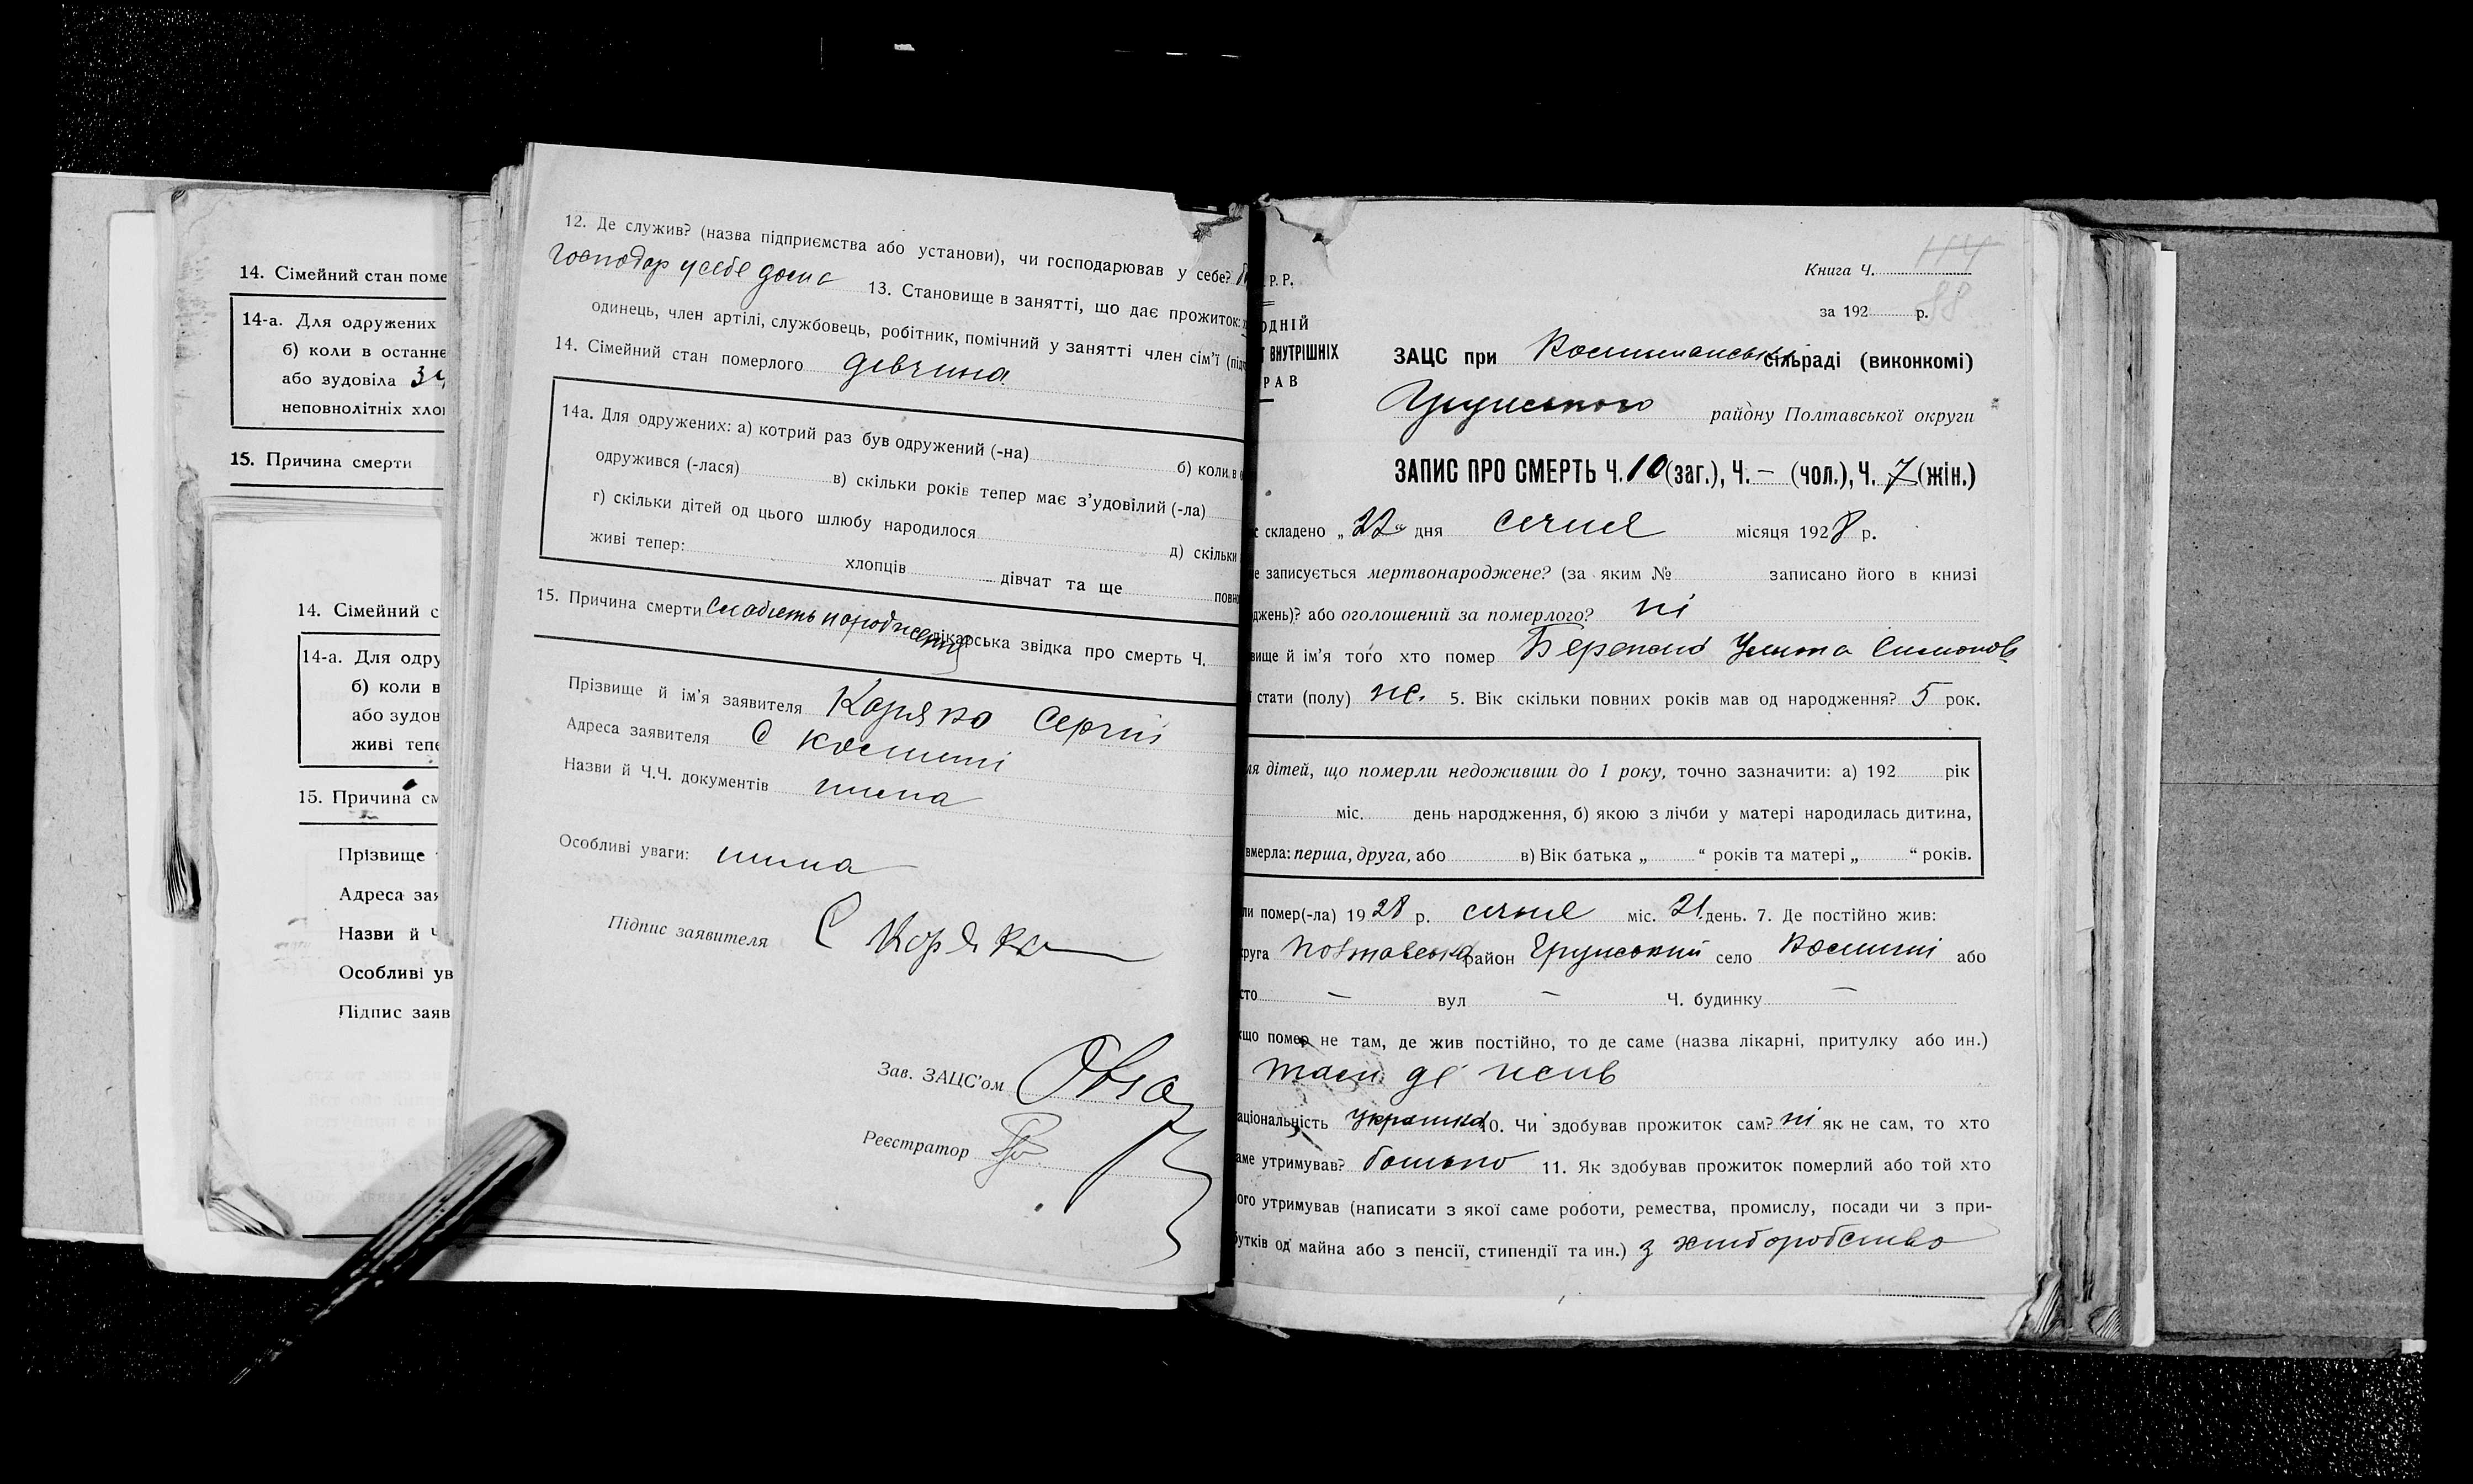 14. Сімейний стан поме
14-а. Для одружених
б) коли в останнє
або зудовіла
неповнолітніх хло
15. Причина смерти
14. Сімейний с
14-а. Для одру
б) коли в
або зудов
живі тепе
15. Причина см
Прізвище
Адреса зая
Назви й Ч
Особливі ув
Підпис заяв
12. Де служив? (назва підприємства або установи), чи господарював у себе?
господар у себе дома 13. Становище в занятті, що дає прожиток:
одинець, член артілі, службовець, робітник, помічний у занятті член сім'ї (під
14. Сімейний стан померлого дівчина
14а. Для одружених: а) котрий раз був одружений (-на) б) коли в
одружився (-лася) в) скільки років тепер має з'удовілий (-ла)
г) скільки дітей од цього шлюбу народилося д) скільки
живі тепер: хлопців дівчат та ще повно
15. Причина смерти лікарська звідка про смерть Ч.
Прізвище й ім'я заявителя Коряко Сергій
Адреса заявителя С
Назви й Ч.Ч. документів нима
Особливі уваги: нима
Підпис заявителя С Коряко
Зав. ЗАЦС'ом
Реєстратор
Р.Р.
ОДНІЙ
ВНУТРІШНІХ
РАВ
Книга Ч. 114
88
за 192 р.
ЗАЦС при сільраді (виконкомі)
Грунського району Полтавської округи
ЗАПИС ПРО СМЕРТЬ Ч. 10 (заг.), Ч. – (чол.), Ч. 7 (жін.)
с складено „22“ дня січня місяця 1928 р.
е записується мертвонароджене? (за яким № записано його в книзі
джень)? або оголошений за померлого? ні
вище й ім'я того хто помер Уляна
ї стати (полу) ж. 5. Вік скільки повних років мав од народження? 5 рок.
ля дітей, що померли недоживши до 1 року, точно зазначити: а) 192 рік
міс. день народження, б) якою з лічби у матері народилась дитина,
вмерла: перша, друга, або в) Вік батька „ “ років та матері „ “ років.
ли помер(-ла) 1928 р. січня міс. 21 день. 7. Де постійно жив:
круга Полтавська район Грунський село або
сто – вул – Ч. будинку –
кщо помер не там, де жив постійно, то де саме (назва лікарні, притулку або ин.)
там де жив
аціональність українка 10. Чи здобував прожиток сам? ні як не сам, то хто
аме утримував? батько 11. Як здобував прожиток померлий або той хто
ого утримував (написати з якої саме роботи, ремества, промислу, посади чи з при-
бутків од майна або з пенсії, стипендії та ин.) з хліборобство